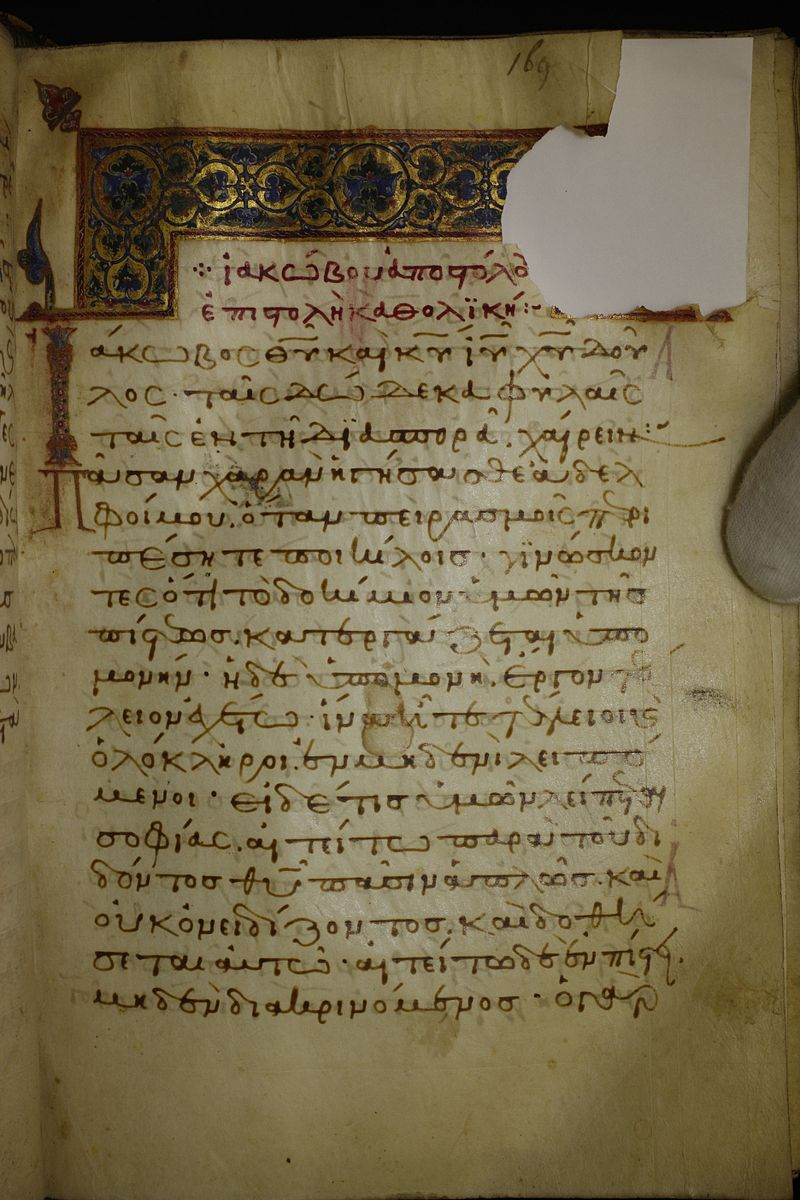 169
ἰακώβου ἀποστόλο
ἐπιστολὴ καθολϊκή:
Ἰάκωβος θῡ καὶ κῡ ἰῡ χῡ δοῦ
λος · ταῖς δώδεκα φυλαῖς
ταῖς ἐν τῆ διασπορᾶ. χαίρειν:
Πᾶσαν χαρὰν ἡγήσασθε ἀδελ
φοί μου. ὅταν πειρασμοῖς περι
πέσητε ποικίλοισ · γϊνώσκον
τες ὅτι τὸ δοκίμιον ὑμῶν τῆσ
πίστεωσ. κατεργάζεται ὑπο
μονήν · ἡ δὲ ὑπομονὴ. ἔργον τέ
λειον ἐχέτω · ἵνα ἦτε τέλειοι κὲ
ὁλόκληροι. ἐν μηδενὶ λειπό
μενοι · εἰ δέ τισ ὑμῶν λείπεται
σοφίας. αἰτείτω παρὰ τοῦ δι
δόντοσ θῡ πᾶσιν ἁπλῶσ. καὶ
οὐκ ὀνειδίζοντοσ. καὶ δοθή
σεται αὐτῶ · αἰτείτω δὲ ἐν πίστει.
μηδὲν διακρινόμενοσ · ὁ γὰρ